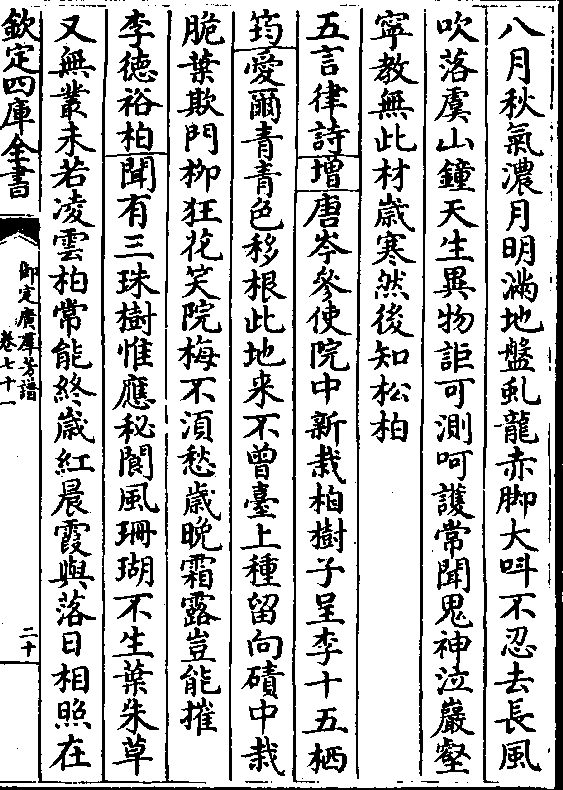 八月秋氣濃月明滿地盤虬龍赤脚大呌不忍去長風
吹落虞山鐘天生異物詎可測呵護常聞鬼神泣巖壑
寧教無此材歳寒然後知松柏
五言律詩增唐岑參使院中新栽柏樹子呈李十五栖
筠愛爾青青色移根此地来不曾臺上種留向磧中栽
脆葉欺門柳狂花笑院梅不湏愁歳晚霜露豈能摧
李徳裕柏聞有三珠樹惟應秘閬風珊瑚不生葉朱草
又無叢未若凌雲柏常能終歳紅晨霞與落日相照在
欽定四庫全書
御定廣羣芳譜
卷七十一
二十